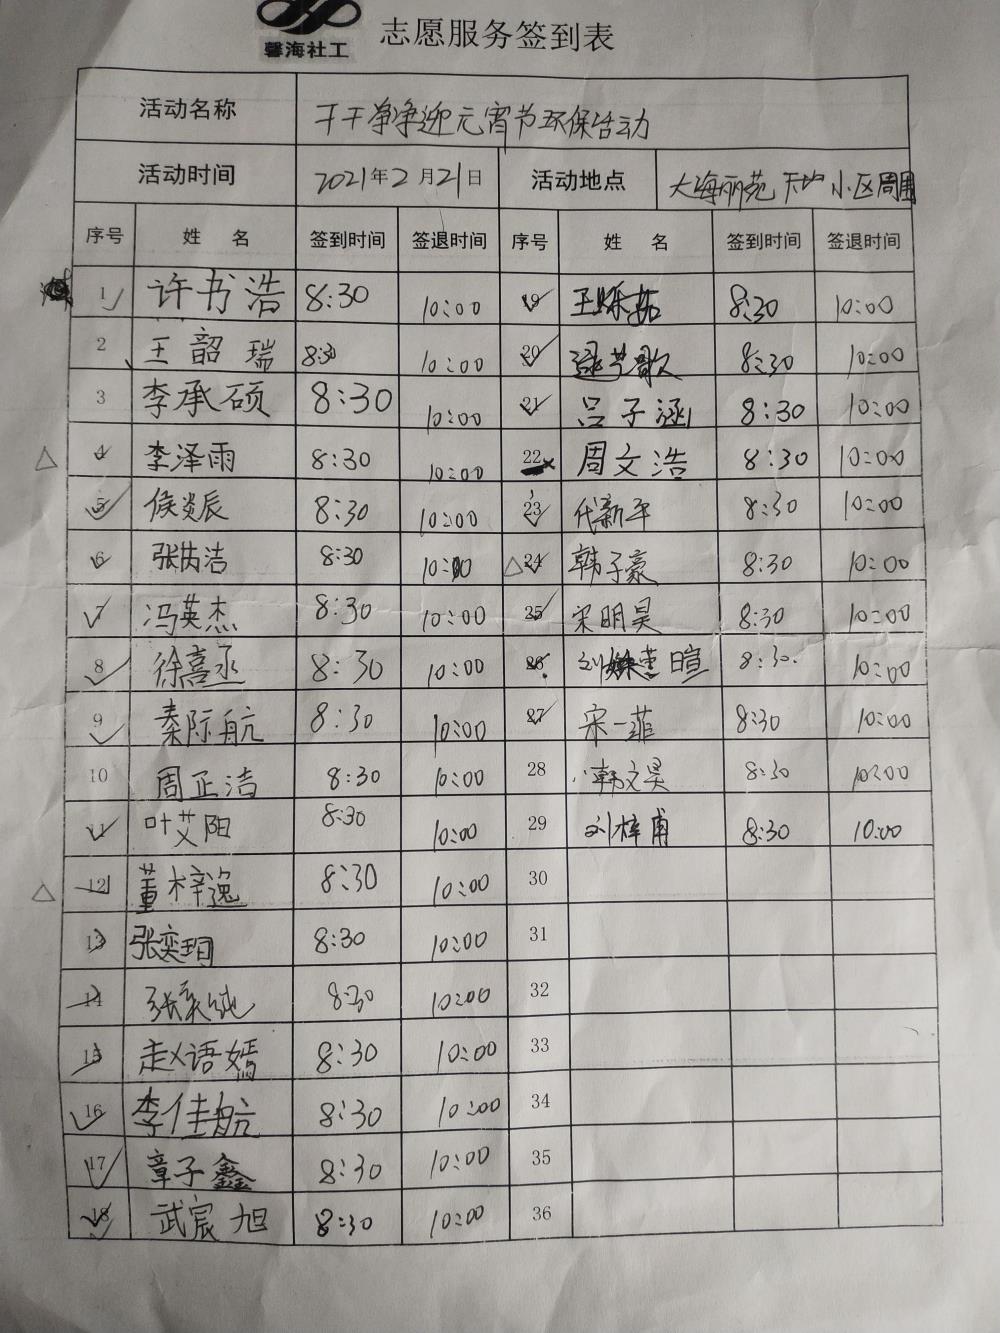 馨海社工 志愿服务签到表
活动名称 干干净净迎元宵节环保活动
活动时间 2021年2月21日 活动地点 大海丽苑 小区周围
序号 姓 名 签到时间 签退时间 序号 姓 名 签到时间 签退时间
1 许书浩 8:30 10:00 19 王 茹 8:30 10:00
2 王韶瑞 8:30 10:00 20 歌 8:30 10:00
3 李承硕 8:30 10:00 21 吕子涵 8:30 10:00
4 李泽雨 8:30 10:00 22 周文浩 8:30 10:00
5 侯炎辰 8:30 10:00 23 代新平 8:30 10:00
6 张 洁 8:30 10:00 24 韩子豪 8:30 10:00
7 冯英杰 8:30 10:00 25 宋明昊 8:30 10:00
8 徐熹丞 8:30 10:00 26 刘 暄 8:30 10:00
9 秦际航 8:30 10:00 27 宋一菲 8:30 10:00
10 周正洁 8:30 10:00 28 韩文昊 8:30 10:00
11 叶艾阳 8:30 10:00 29 刘梓甫 8:30 10:00
12 董梓逸 8:30 10:00 30
13 张奕珣 8:30 10:00 31
14 张 纯 8:30 10:00 32
15 赵语嫣 8:30 10:00 33
16 李佳航 8:30 10:00 34
17 章子鑫 8:30 10:00 35
18 武宸旭 8:30 10:00 36